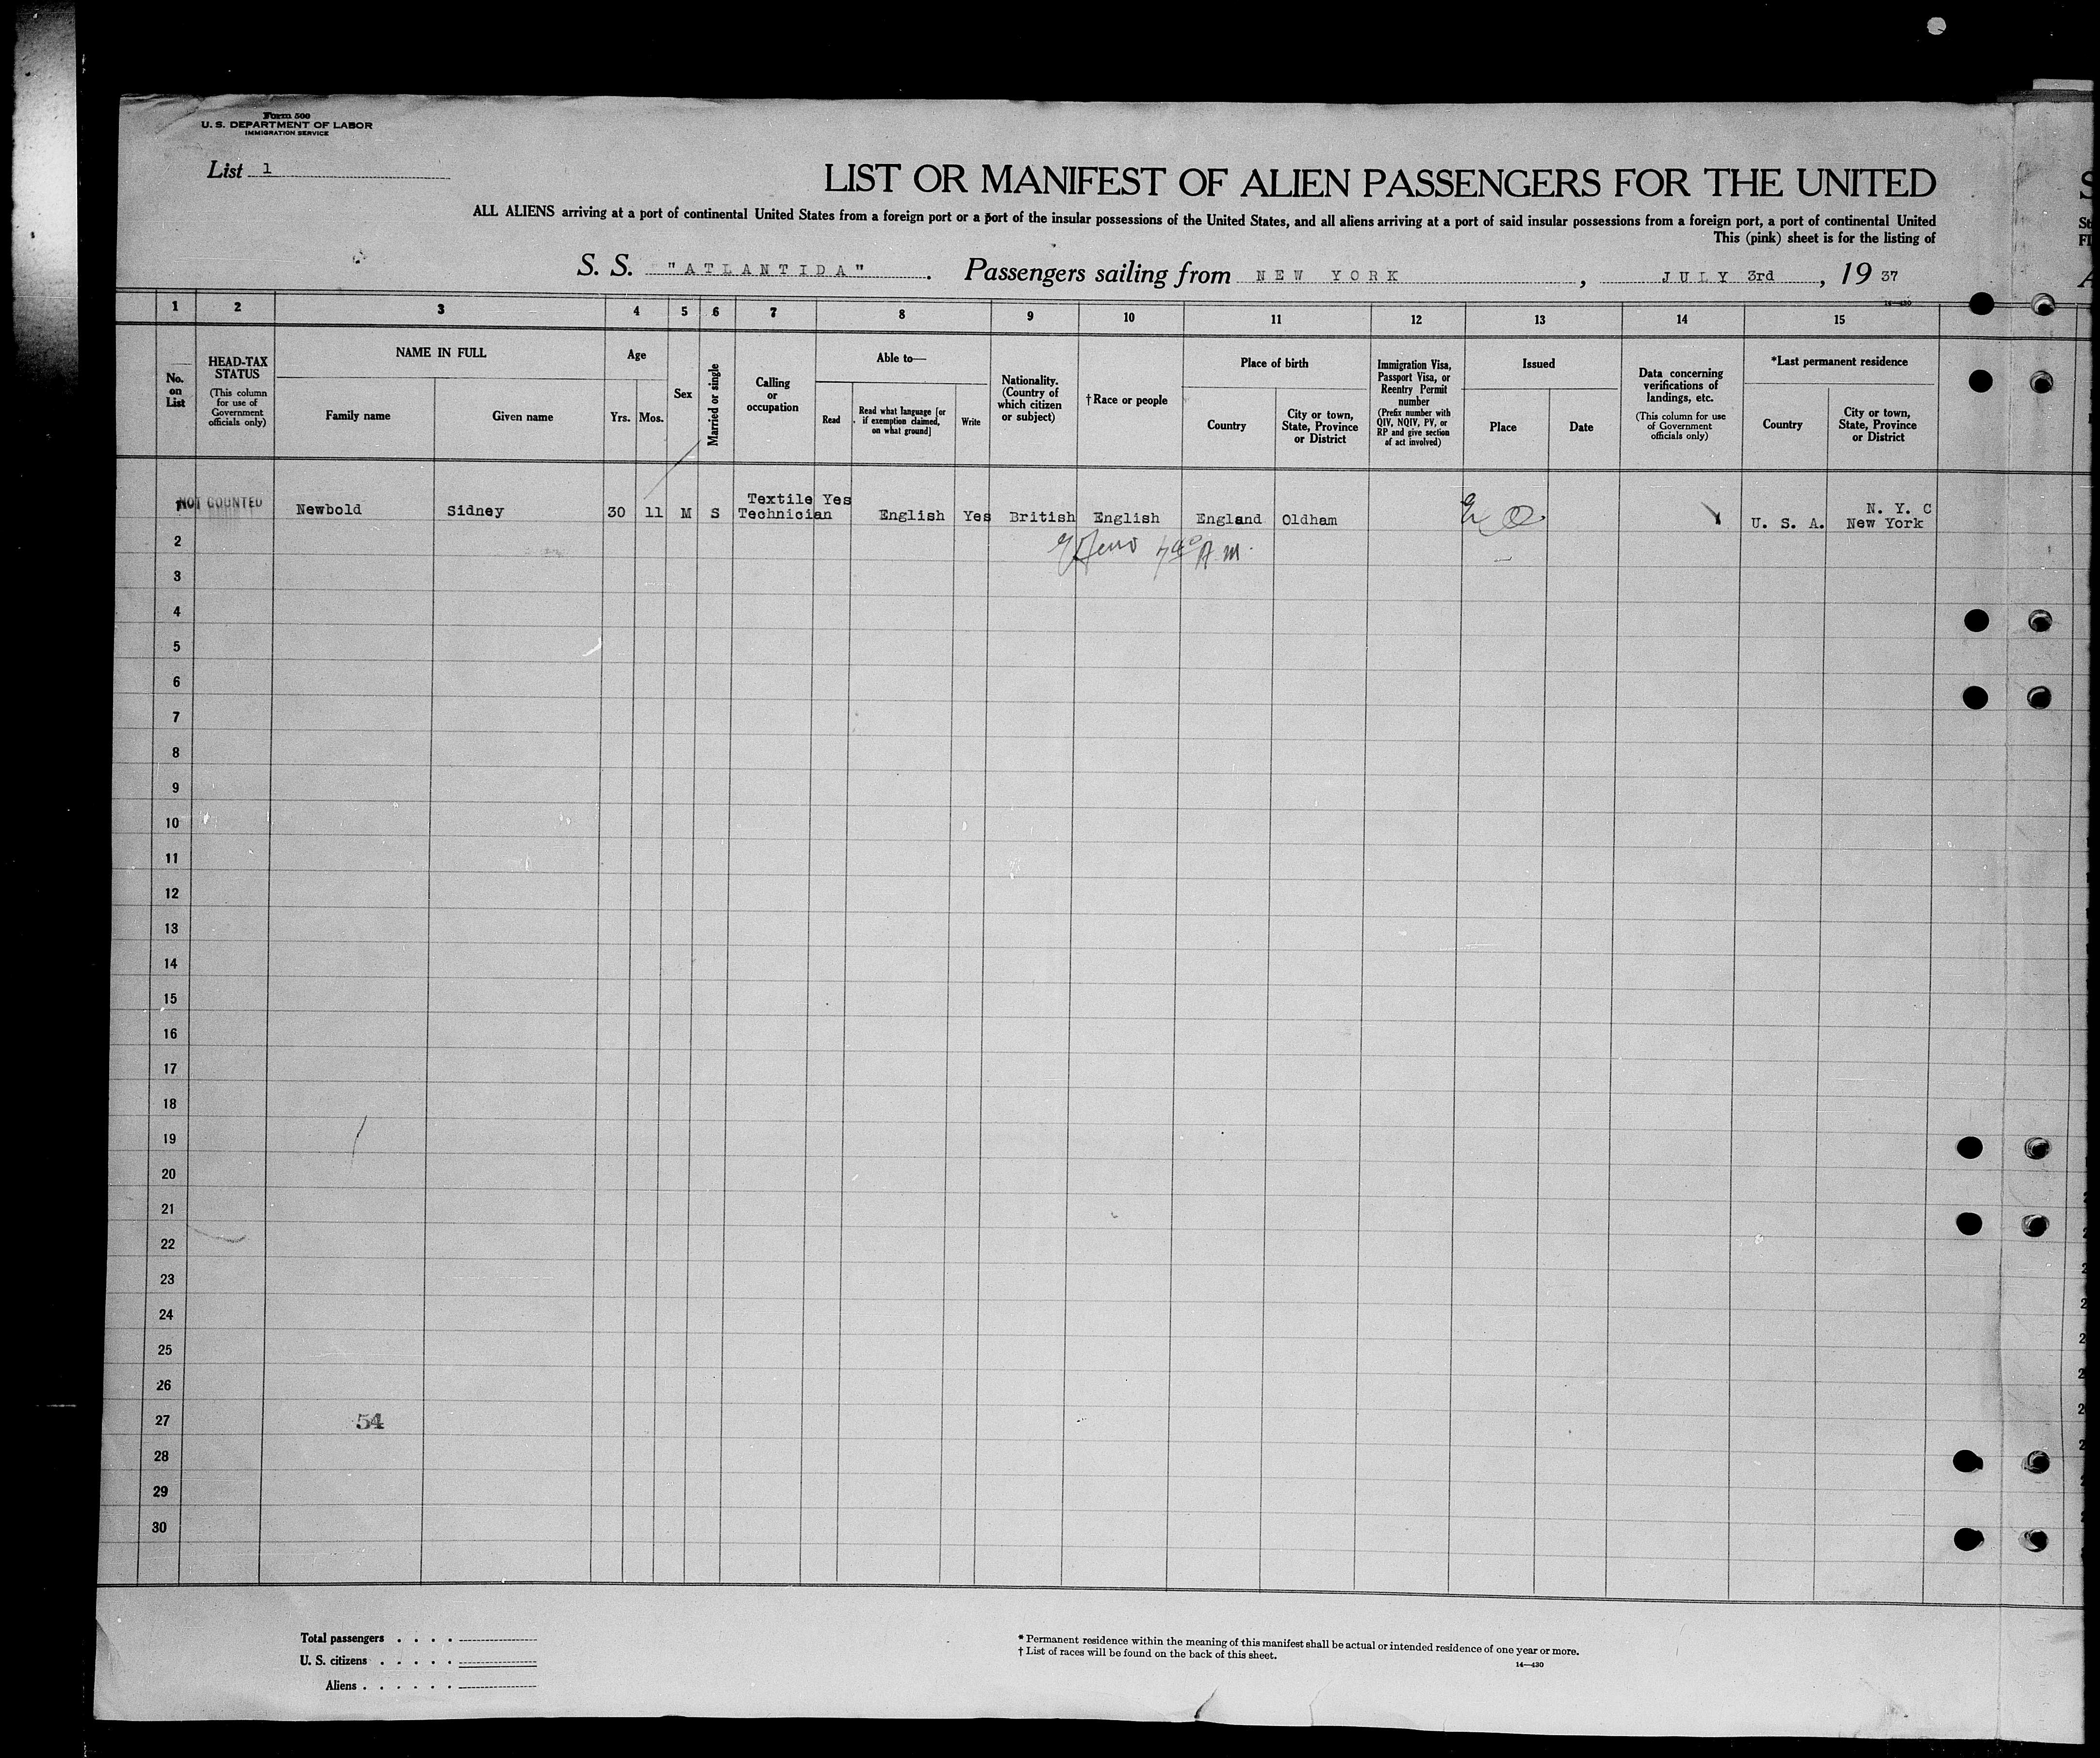 Form 500
U. S. DEPARTMENT OF LABOR
IMMIGRATION SERVICE
List 1
LIST OR MANIFEST OF ALIEN PASSENGERS FOR THE UNITED
ALL ALIENS arriving at a port of continental United States from a foreign port or a port of the insular possessions of the United States, and all aliens arriving at a port of said insular possessions from a foreign port, a port of continental United
This (pink) sheet is for the listing of
S. S. "ATLANTIDA". Passengers sailing from NEW YORK, JULY 3rd, 19 37
14—430
1 2 3 4 5 6 7 8 9 10 11 12 13 14 15
No. on List
HEAD-TAX STATUS
(This column for use of Government officials only)
NAME IN FULL
Family name
Given name
Age
Yrs. Mos.
Sex
Married or single
Calling or occupation
Able to—
Read
Read what language [or if exemption claimed, on what ground]
Write
Nationality. (Country of which citizen or subject)
†Race or people
Place of birth
Country
City or town, State, Province or District
Immigration Visa, Passport Visa, or Reentry Permit number
(Prefix number with QIV, NQIV, PV, or RP and give section of act involved)
Issued
Place
Date
Data concerning verifications of landings, etc.
(This column for use of Government officials only)
*Last permanent residence
Country
City or town, State, Province or District
1 NOT COUNTED Newbold Sidney 30 11 M S Textile Technician Yes English Yes British English England Oldham U. S. A. N. Y. C New York
2 A.M.
3
4
5
6
7
8
9
10
11
12
13
14
15
16
17
18
19
20
21
22
23
24
25
26
27 54
28
29
30
Total passengers . . . .
U. S. citizens . . . . .
Aliens . . . . . .
* Permanent residence within the meaning of this manifest shall be actual or intended residence of one year or more.
† List of races will be found on the back of this sheet.
14—430